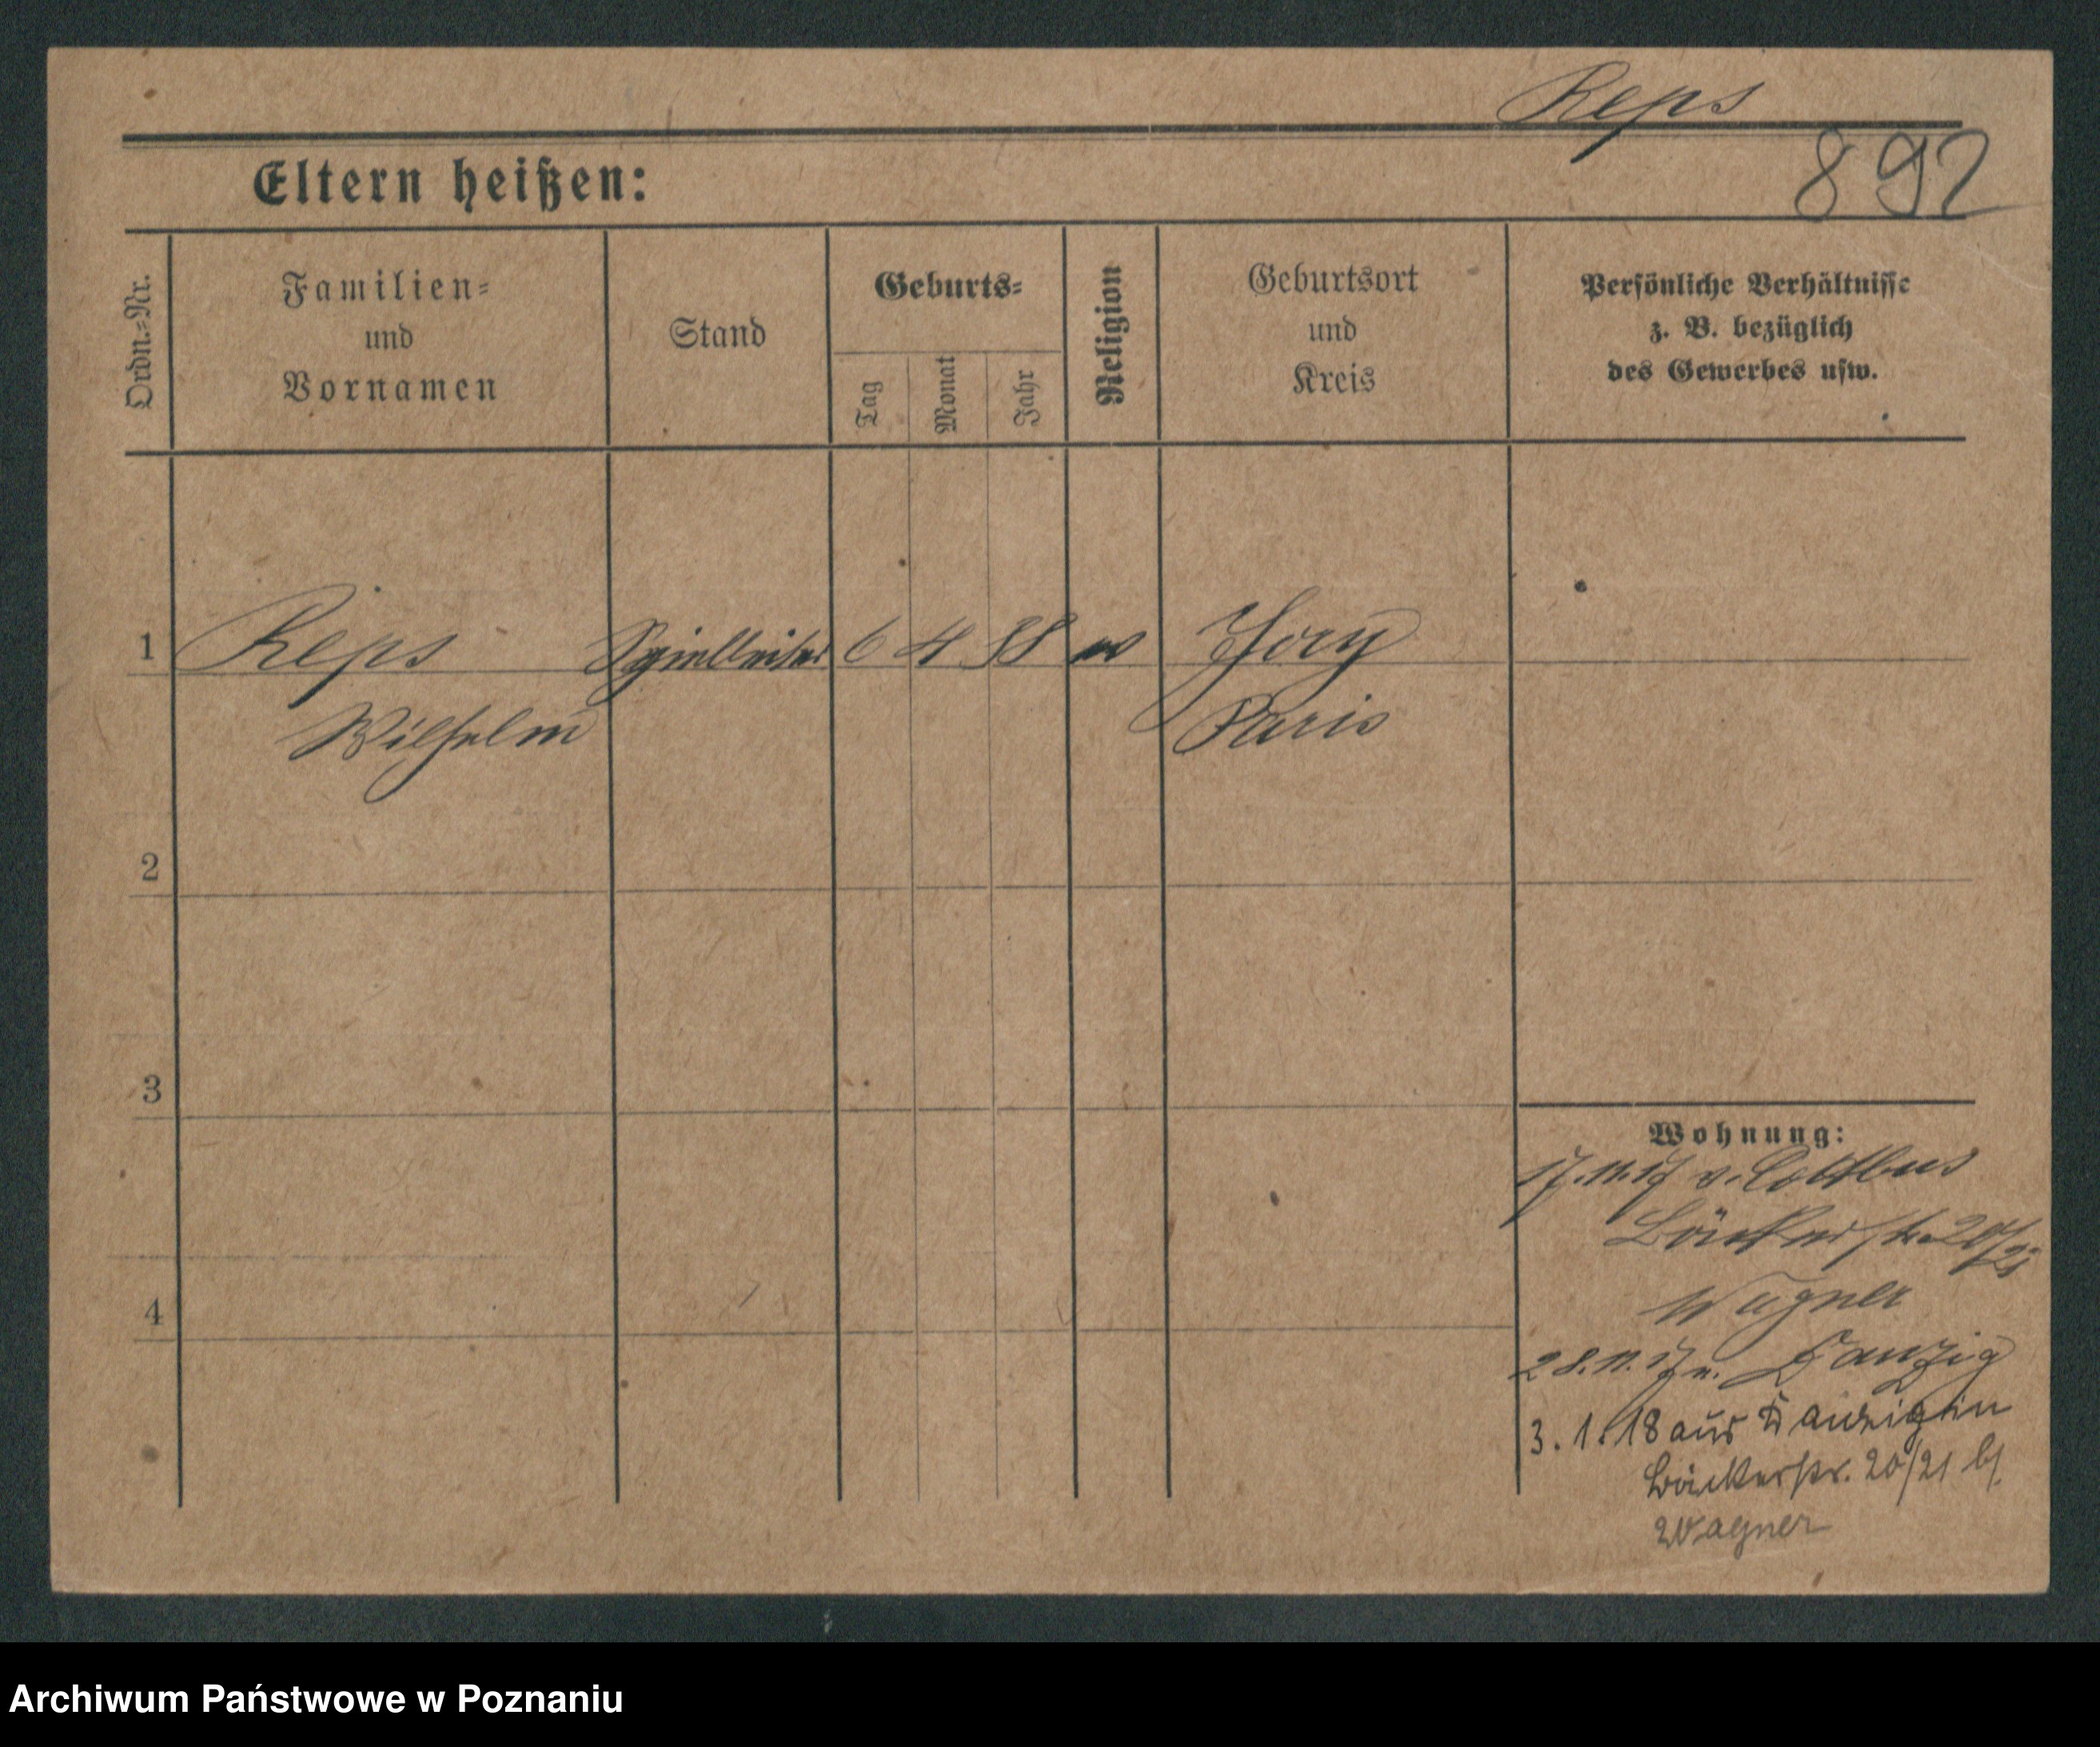 Reps
892
Eltern heißen:
Ordn.-Nr.
Familien-
und
Vornamen
Stand
Geburts-
Tag
Monat
Jahr
Religion
Geburtsort
und
Kreis
Persönliche Verhältnisse
z. B. bezüglich
des Gewerbes usw.
1
Reps
Spielleiter
6 4 38
Jory
Wilhelm
Paris
2
3
4
Wohnung:
17.11.17 v. Cottbus
Bäckerstr. 20/21
Wagner
28.11.17 n. Danzig
3.1.18 aus Danzig in
Bäckerstr. 20/21 bf.
Wagner
Archiwum Państwowe w Poznaniu